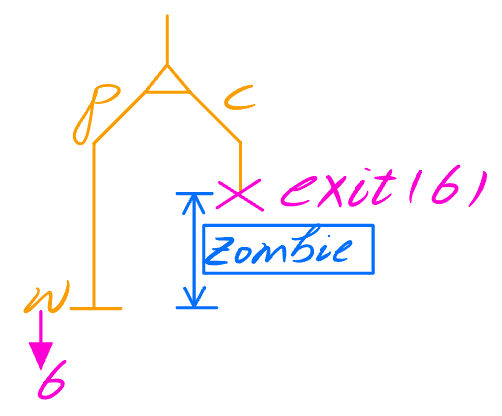 P
C
exit(6)
Zombie
W
6